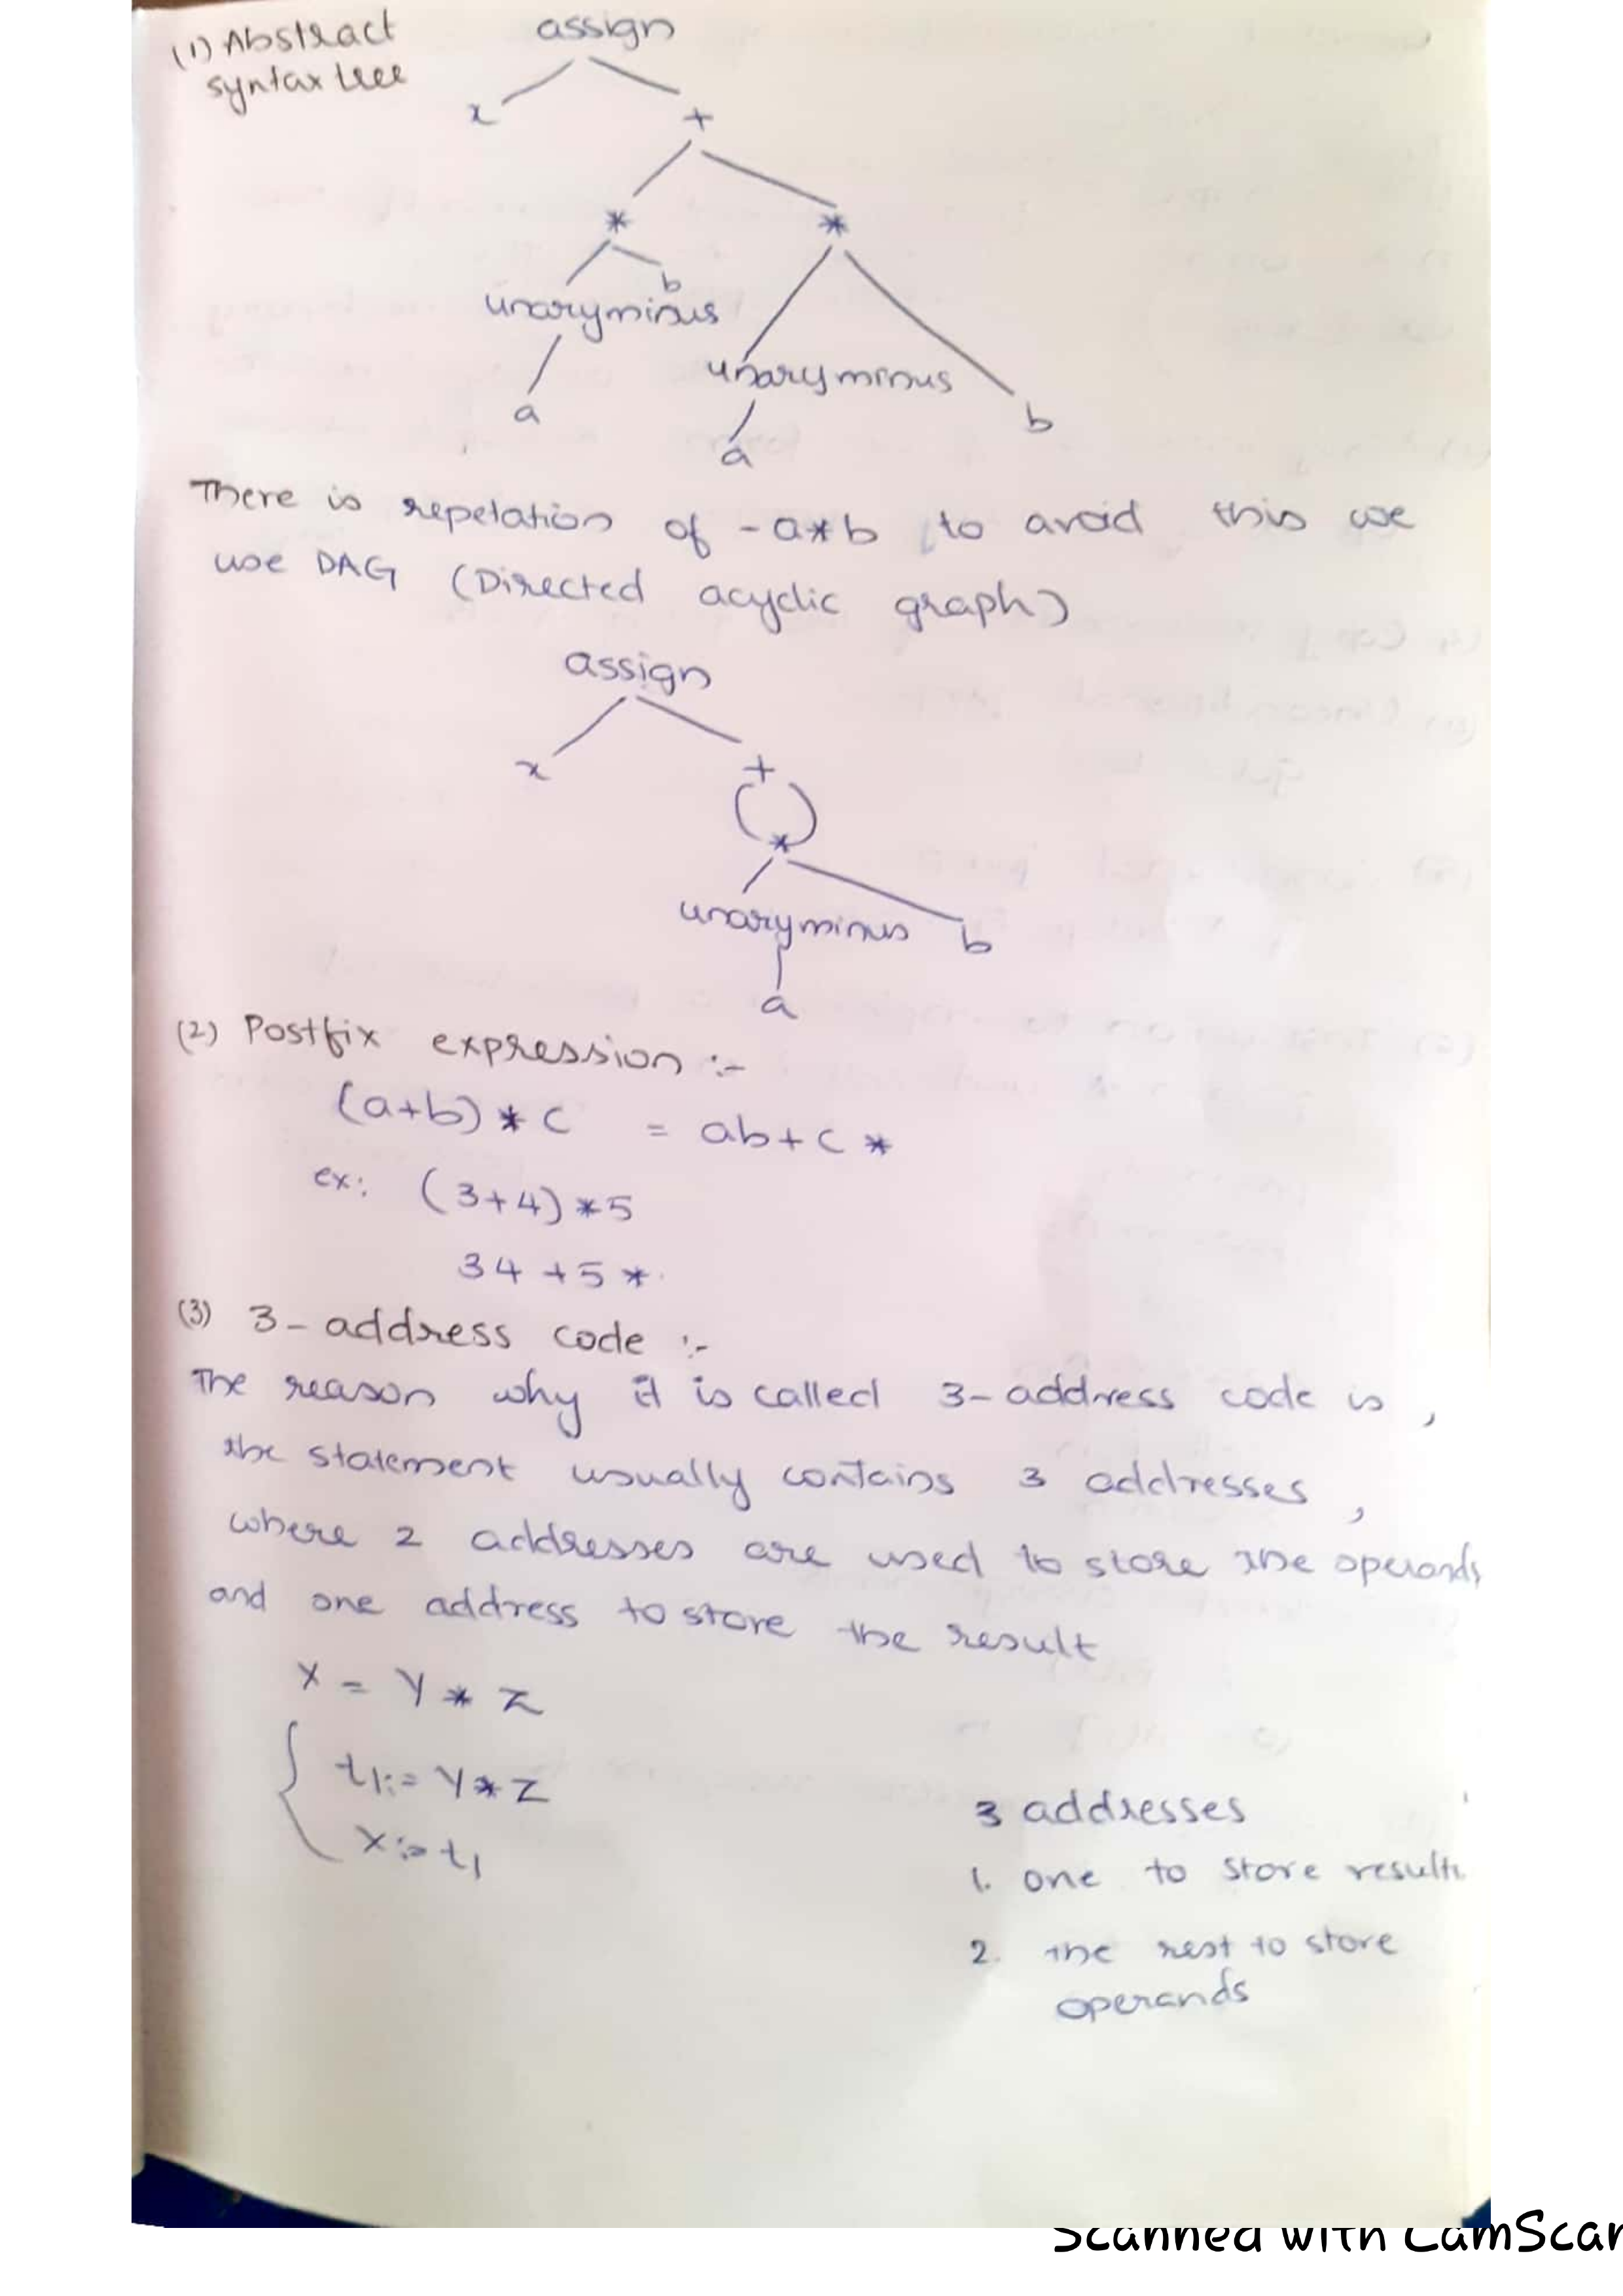 (1) Abstract
syntax tree
assign
x +
* *
b
unaryminus
unaryminus
a b
a
There is repetation of -a*b to avoid this we
use DAG (Directed acyclic graph)
assign
x +
*
unaryminus b
a
(2) Postfix expression :-
(a+b) * c = ab+c *
ex: (3+4) *5
34 +5 *.
(3) 3-address code :-
The reason why it is called 3-address code is ,
the statement usually contains 3 addresses ,
where 2 addresses are used to store the operands
and one address to store the result
X = Y * Z
t1:= Y*Z
X:= t1
3 addresses
1. one to store results
2. the rest to store
operands
Scanned with CamScan